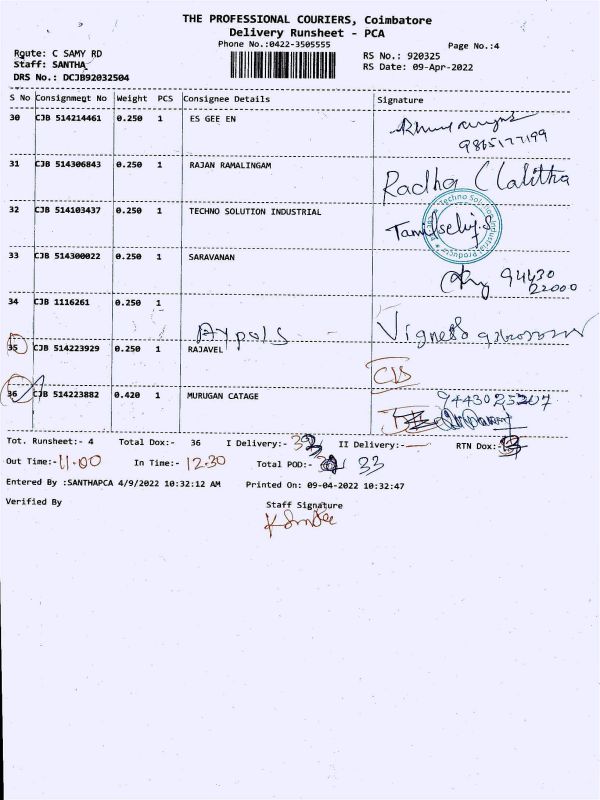 THE PROFESSIONAL COURIERS, Coimbatore
Delivery Runsheet - PCA
Phone No.:0422-3505555
Page No.:4
Route: C SAMY RD
RS No.: 920325
Staff: SANTHA
RS Date: 09-Apr-2022
DRS No.: DCJB92032504
S No Consignment No Weight PCS Consignee Details Signature
30 CJB 514214461 0.250 1 ES GEE EN
9865177199
31 CJB 514306843 0.250 1 RAJAN RAMALINGAM
Radha Lalitha
32 CJB 514103437 0.250 1 TECHNO SOLUTION INDUSTRIAL
Tamilselvi.S
33 CJB 514300022 0.250 1 SARAVANAN
94430
22000
34 CJB 1116261 0.250 1
Vignesh
35 CJB 514223929 0.250 1 RAJAVEL
36 CJB 514223882 0.420 1 MURUGAN CATAGE
9443025207
Tot. Runsheet:- 4 Total Dox:- 36 I Delivery:- II Delivery:- RTN Dox:-
Out Time:- 11.00 In Time:- 12.30 Total POD:- 33
Entered By :SANTHAPCA 4/9/2022 10:32:12 AM Printed On: 09-04-2022 10:32:47
Verified By Staff Signature